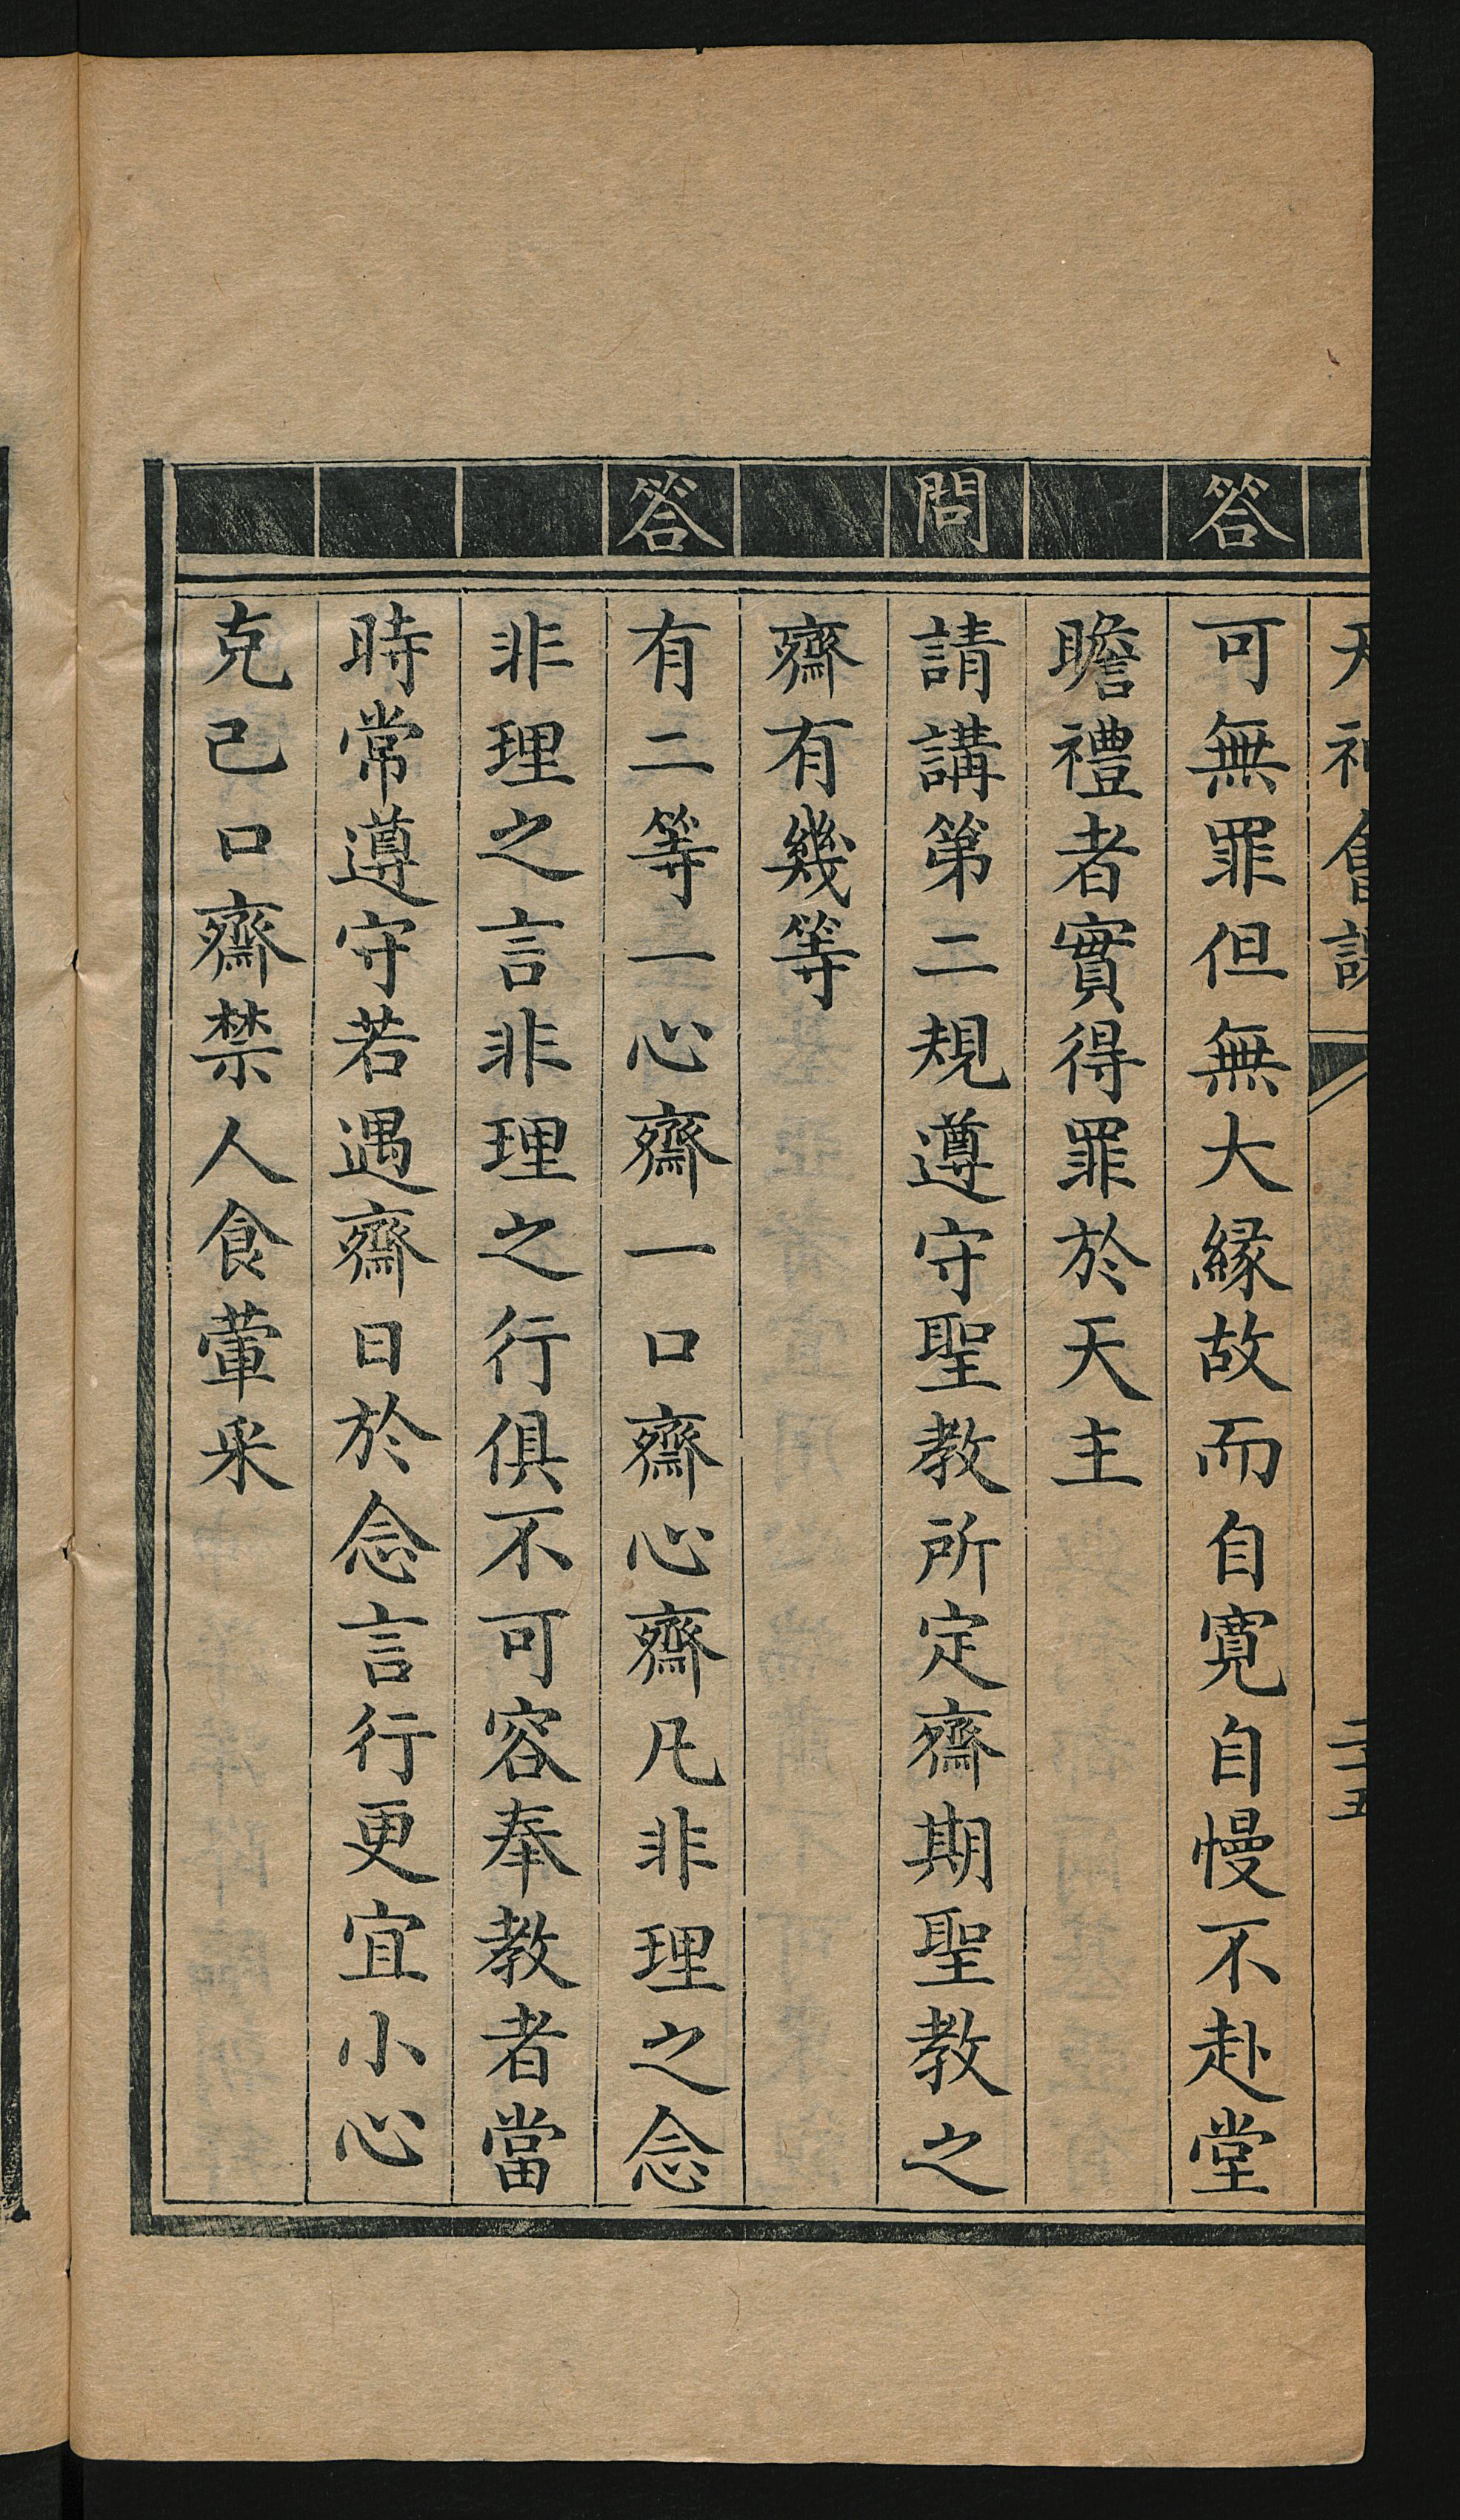 天神會課 二五
答 可無罪但無大縁故而自寬自慢不赴堂
瞻禮者實得罪於天主
問 請講第二規遵守聖教所定齋期聖教之
齋有幾等
答 有二等一心齋一口齋心齋凡非理之念
非理之言非理之行俱不可容奉教者當
時常遵守若遇齋日於念言行更宜小心
克己口齋禁人食葷釆